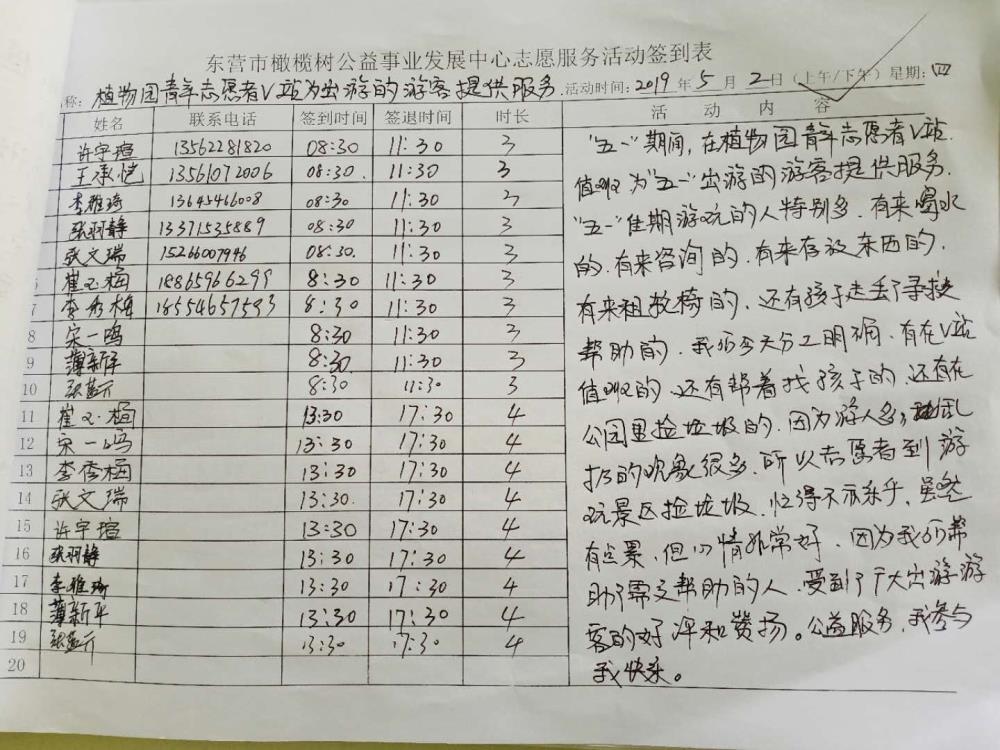 东营市橄榄树公益事业发展中心志愿服务活动签到表
称：植物园青年志愿者V站为出游的游客提供服务. 活动时间：2019年5月2日（上午/下午）星期：四
姓名 联系电话 签到时间 签退时间 时长 活动内容
许宇瑄 13562281820 08:30 11:30 3
王承恺 13561072006 08:30 11:30 3
李雅琦 13645466008 08:30 11:30 3
张羽静 13371535889 08:30 11:30 3
张文瑞 15266007946 08:30 11:30 3
崔玉梅 18865966299 8:30 11:30 3
7 李秀梅 18554657593 8:30 11:30 3
8 宋一鸣 8:30 11:30 3
9 薄新平 8:30 11:30 3
10 8:30 11:30 3
11 崔玉梅 13:30 17:30 4
12 宋一鸣 13:30 17:30 4
13 李秀梅 13:30 17:30 4
14 张文瑞 13:30 17:30 4
15 许宇瑄 13:30 17:30 4
16 张羽静 13:30 17:30 4
17 李雅琦 13:30 17:30 4
18 薄新平 13:30 17:30 4
19 13:30 17:30 4
20
"五一"期间，在植物园青年志愿者V站
值班为"五一"出游的游客提供服务.
"五一"佳期游玩的人特别多，有来喝水
的，有来咨询的，有来存放东西的，
有来租轮椅的，还有孩子走丢了寻找
帮助的，我们今天分工明确，有在V站
值班的，还有帮着找孩子的，还有在
公园里捡垃圾的，因为游人多，乱
扔的现象很多，所以志愿者到游
玩景区捡垃圾，忙得不亦乐乎，虽然
有点累，但心情非常好，因为我们帮
助了需要帮助的人，受到了广大出游游
客的好评和赞扬。公益服务，我参与
我快乐。